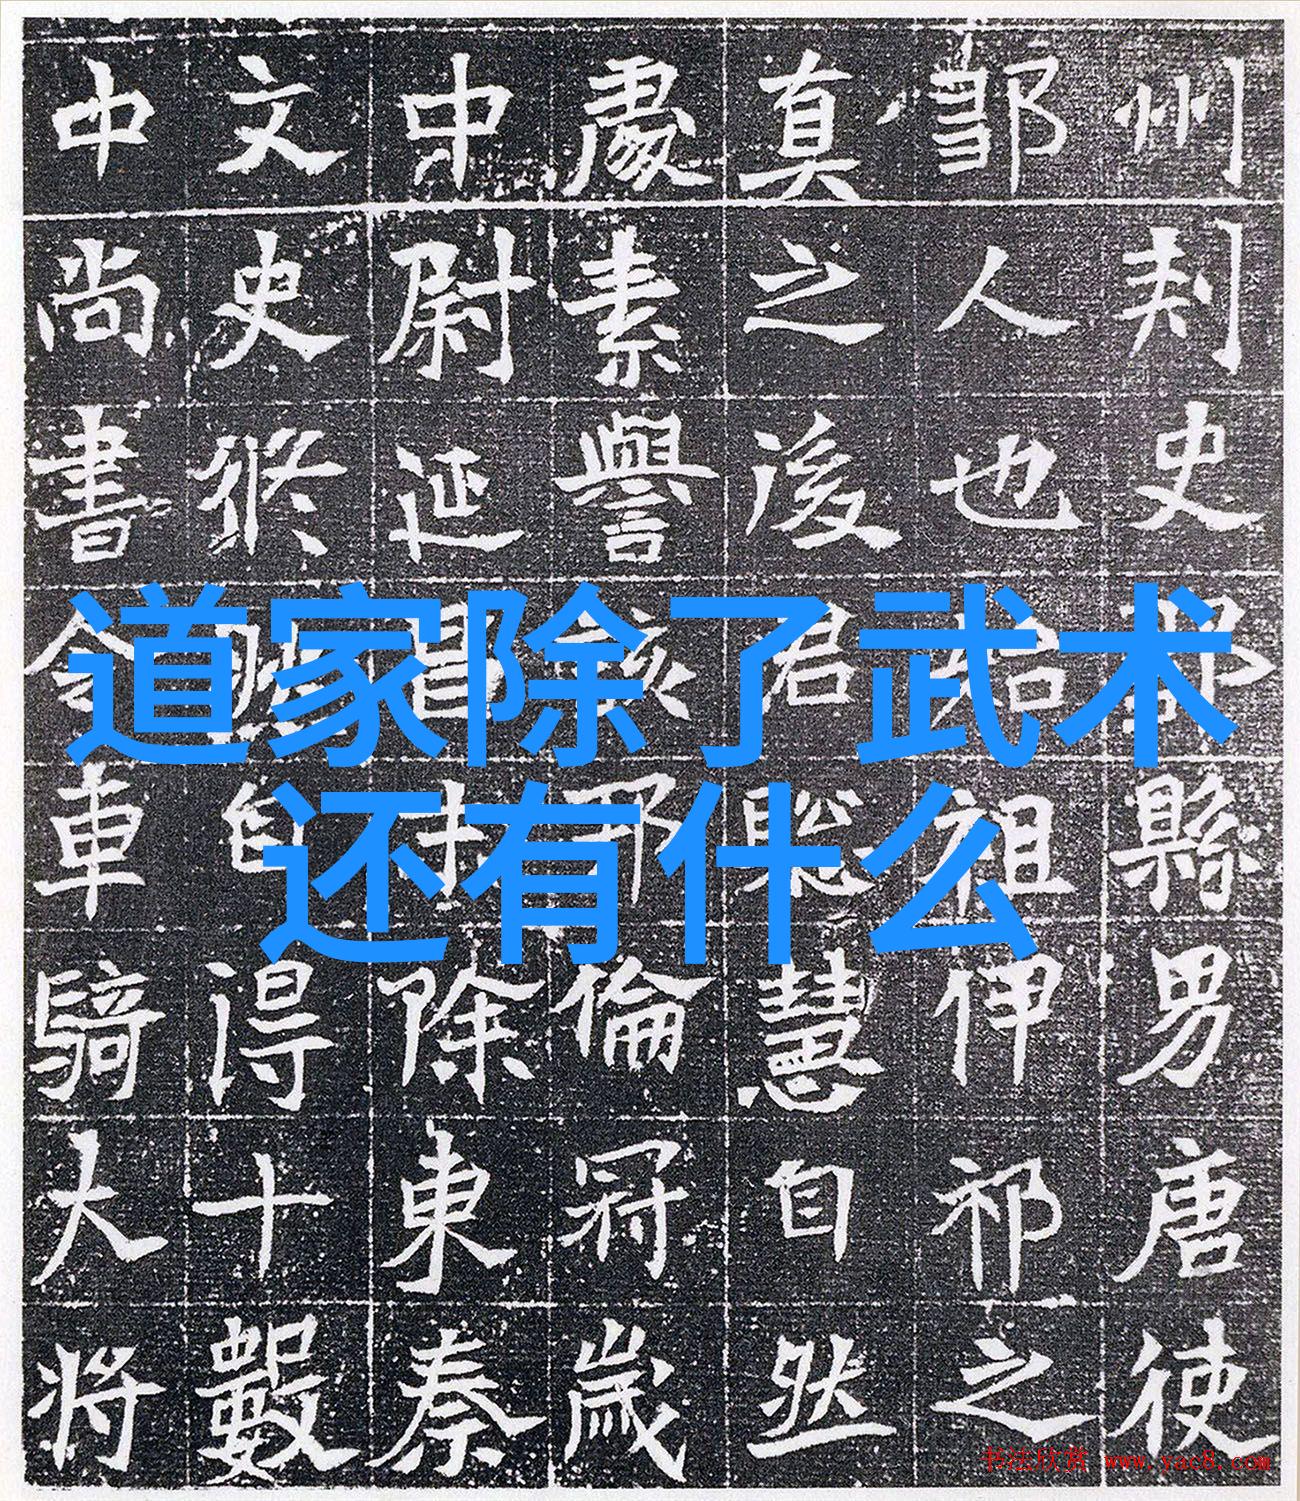 州刾史縣男唐使
邹人也始祖伊祁之
真之後君聡慧自然
處素譽倫冠歲
中尉延昌除東秦
文史修自得十數
中尚書令車騎大将
道家除了武术
还有什么
书法欣赏 www.yac8.com